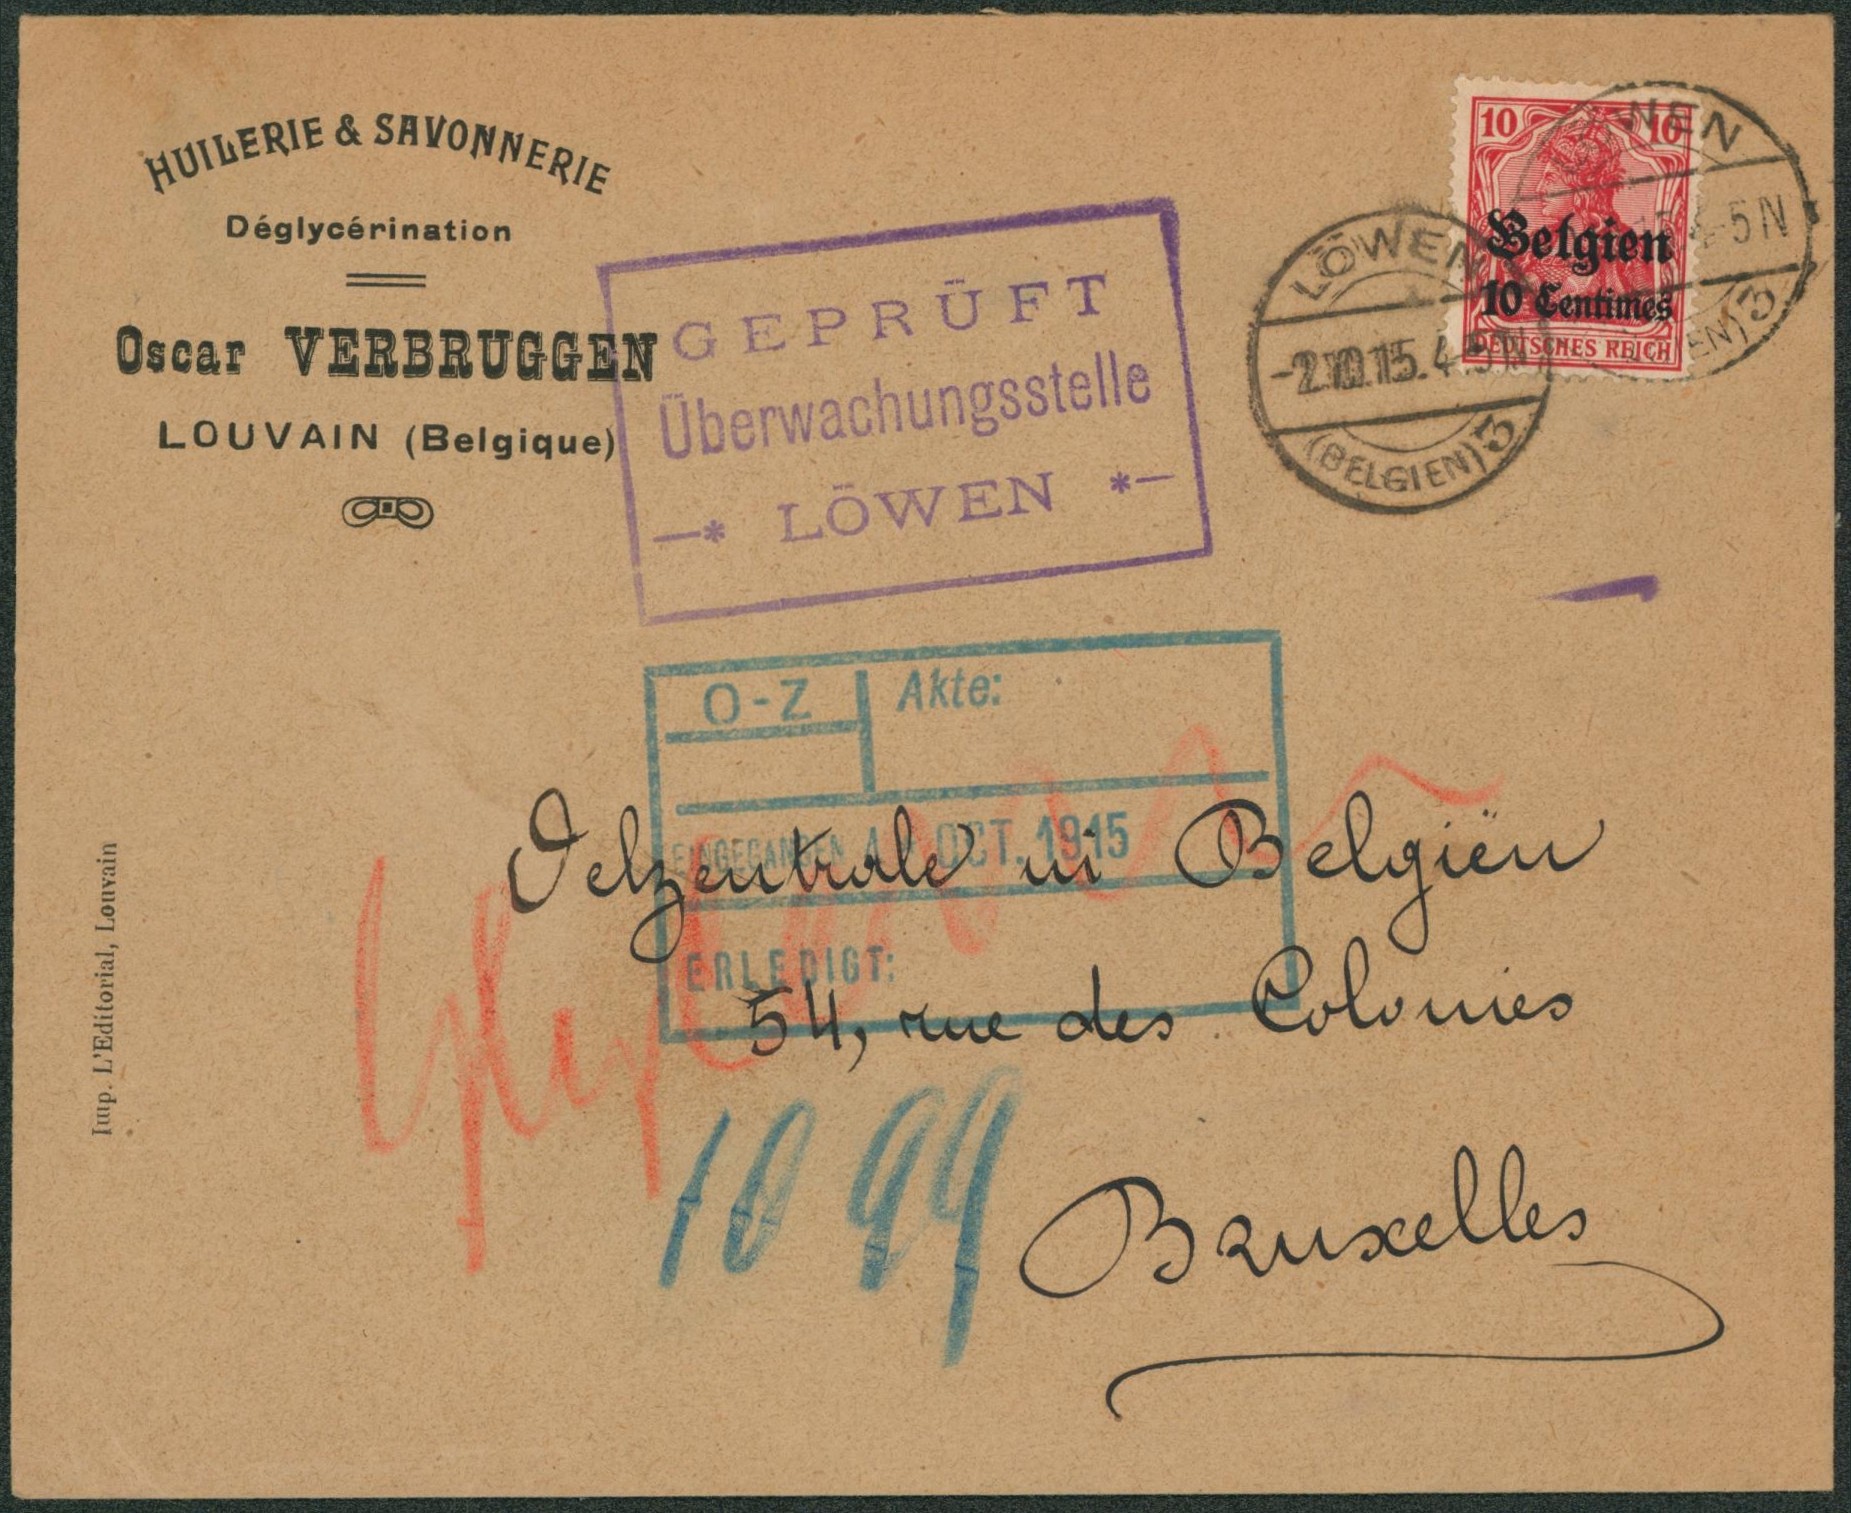 HUILERIE & SAVONNERIE
Déglycérination
Oscar VERBRUGGEN
LOUVAIN (Belgique)
GEPRÜFT
Überwachungsstelle
—* LÖWEN *—
10 10
Belgien
10 Centimes
DEUTSCHES REICH
LÖWEN
-2.10.15.4-5N
(BELGIEN) 3
WEN
-5N
EN) 3
O-Z Akte:
EINGEGANGEN OCT. 1915
ERLEDIGT:
Oelzentrale in Belgiën
54, rue des Colonies
Bruxelles
1099
Imp. L'Editorial, Louvain